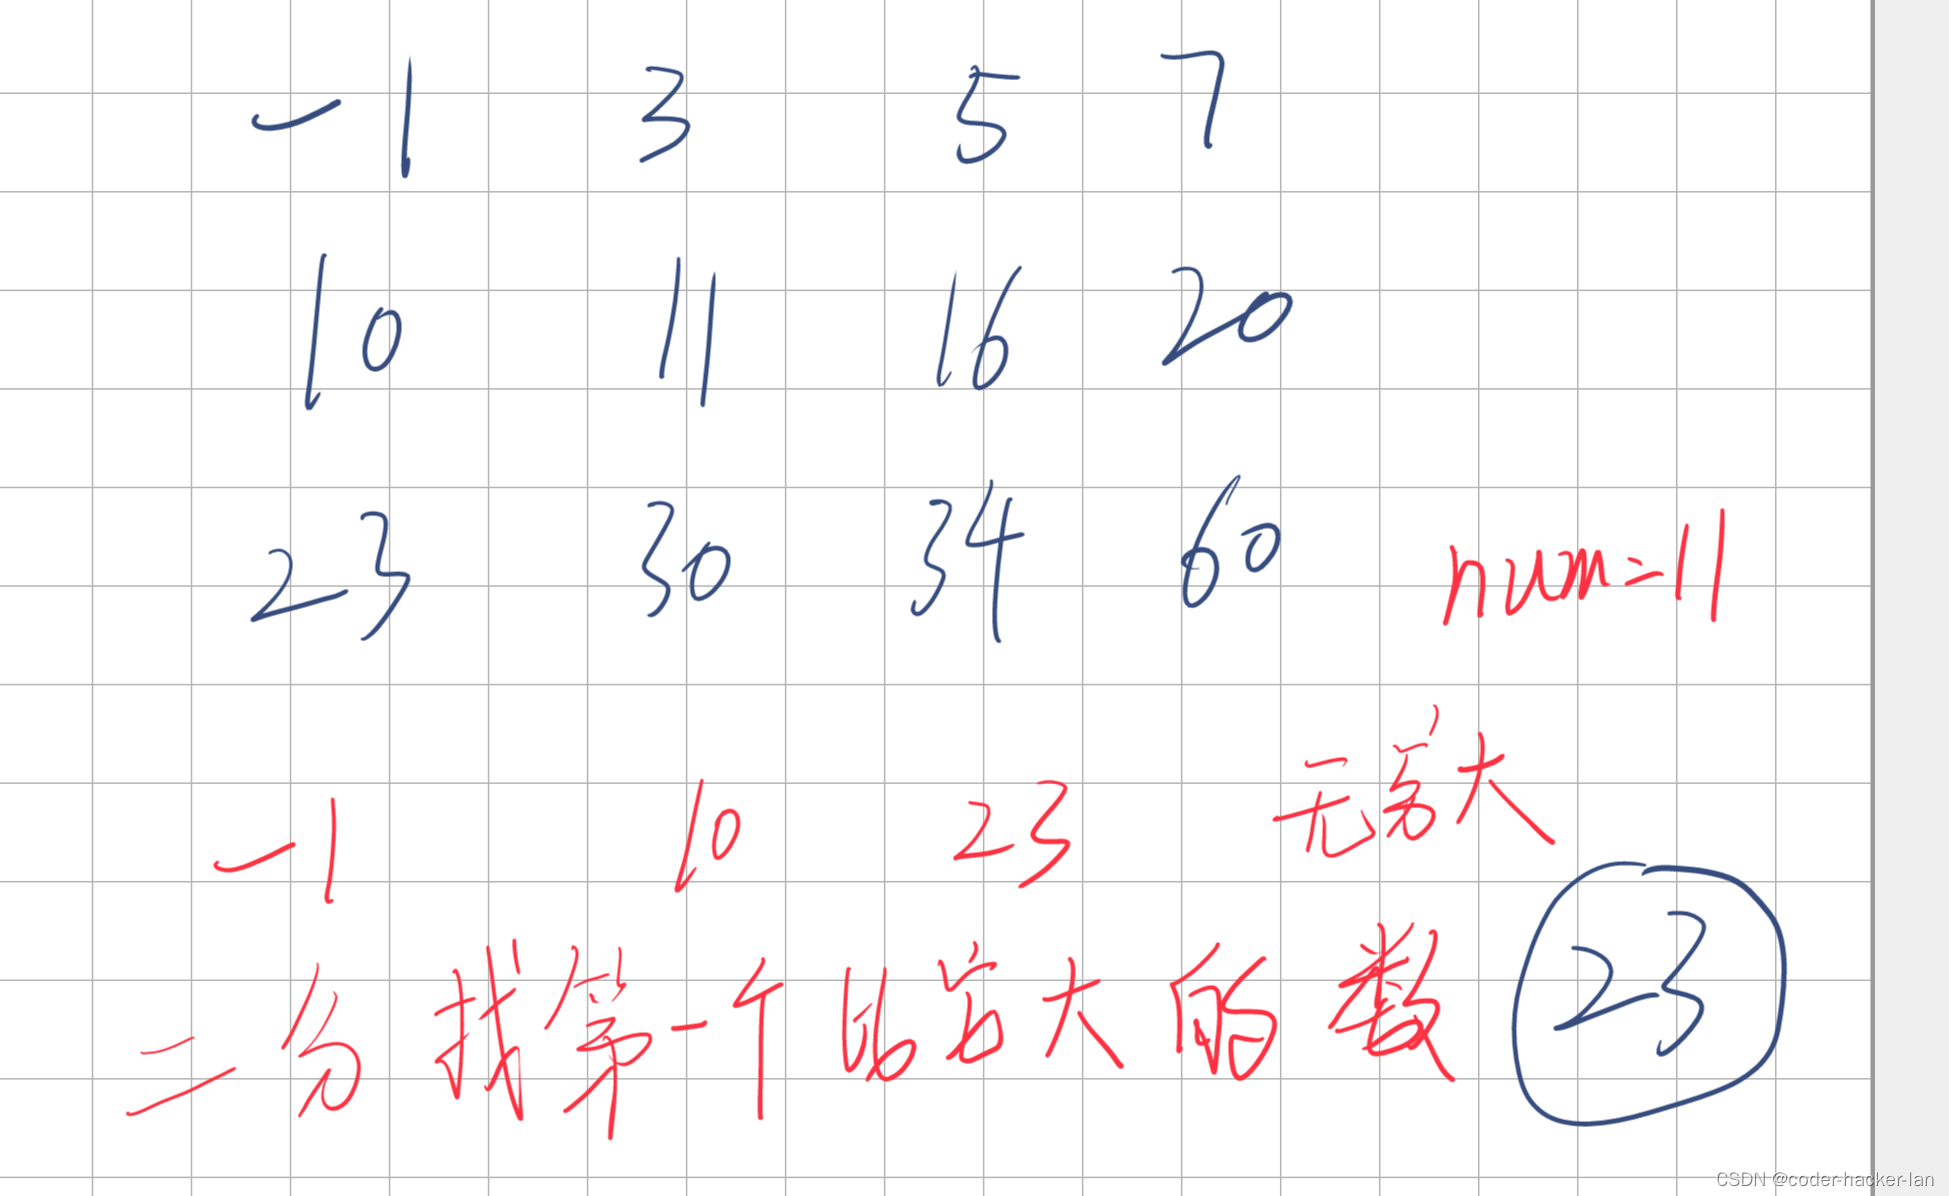 -1 3 5 7
10 11 16 20
23 30 34 60
num=11
-1 10 23 无穷大
二分找第一个比它大的数 23
CSDN @coder-hacker-lan